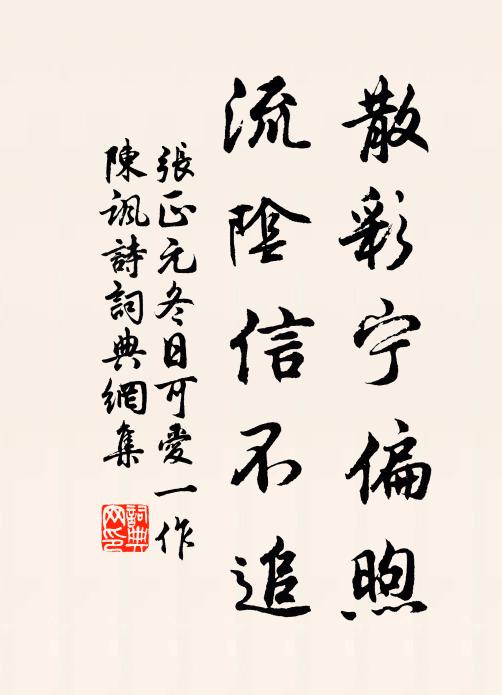 散彩宁偏煦
流陰信不追
張正元冬日可愛一作
陳諷詩詞典網集
詞典网印